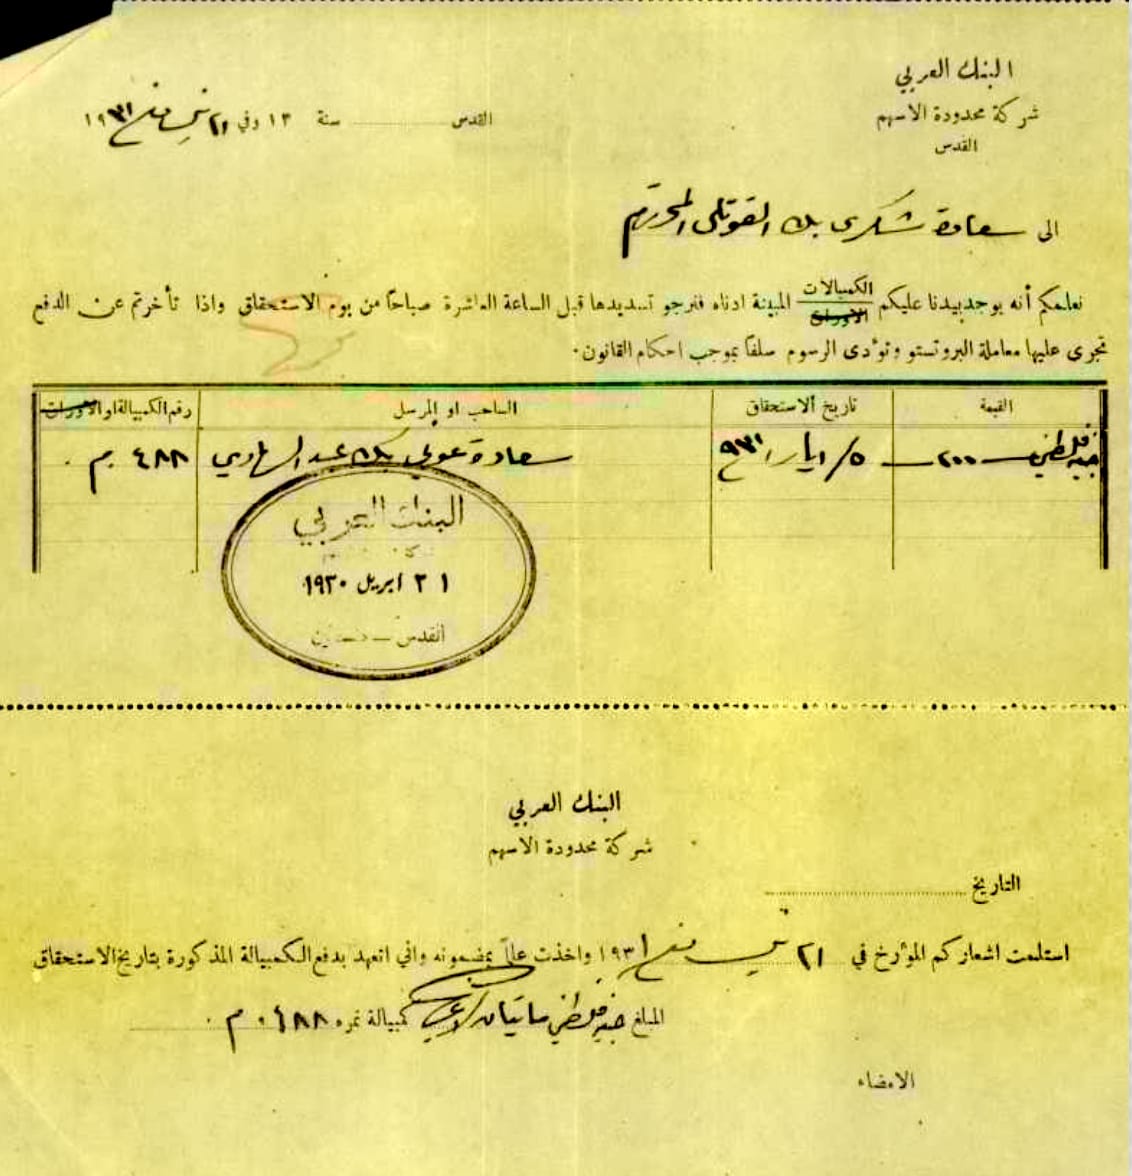 البنك العربي
شركة محدودة الاسهم
القدس
القدس سنة ١٣ وفي ٢١ نيسان سنة ١٩٣١
الى سعادة شكري بك القوتلي المحترم
نعلمكم أنه يوجد بيدنا عليكم الكمبيالات الاوراق المبينة ادناه فنرجو تسديدها قبل الساعة العاشرة صباحاً من يوم الاستحقاق واذا تأخرتم عن الدفع
تجرى عليها معاملة البروتستو وتؤدى الرسوم سلفاً بموجب احكام القانون.
القيمة تاريخ الاستحقاق الساحب او المرسل رقم الكمبيالة او الاوراق
جنيه فلسطيني ٢٠٠ ٥/ايار/٩٣١ سعادة عوني بك عبد الهادي ٤٨٨ م.
البنك العربي
٢١ ابريل ١٩٣٠
القدس - فلسطين
البنك العربي
شركة محدودة الاسهم
التاريخ
استلمت اشعاركم المؤرخ في ٢١ نيسان سنة ١٩٣١ واخذت علماً بمضمونه واني اتعهد بدفع الكمبيالة المذكورة بتاريخ الاستحقاق
المبلغ جنيه فلسطيني مايتان لاغير كمبيالة نمره ٤٨٨ م.
الامضاء